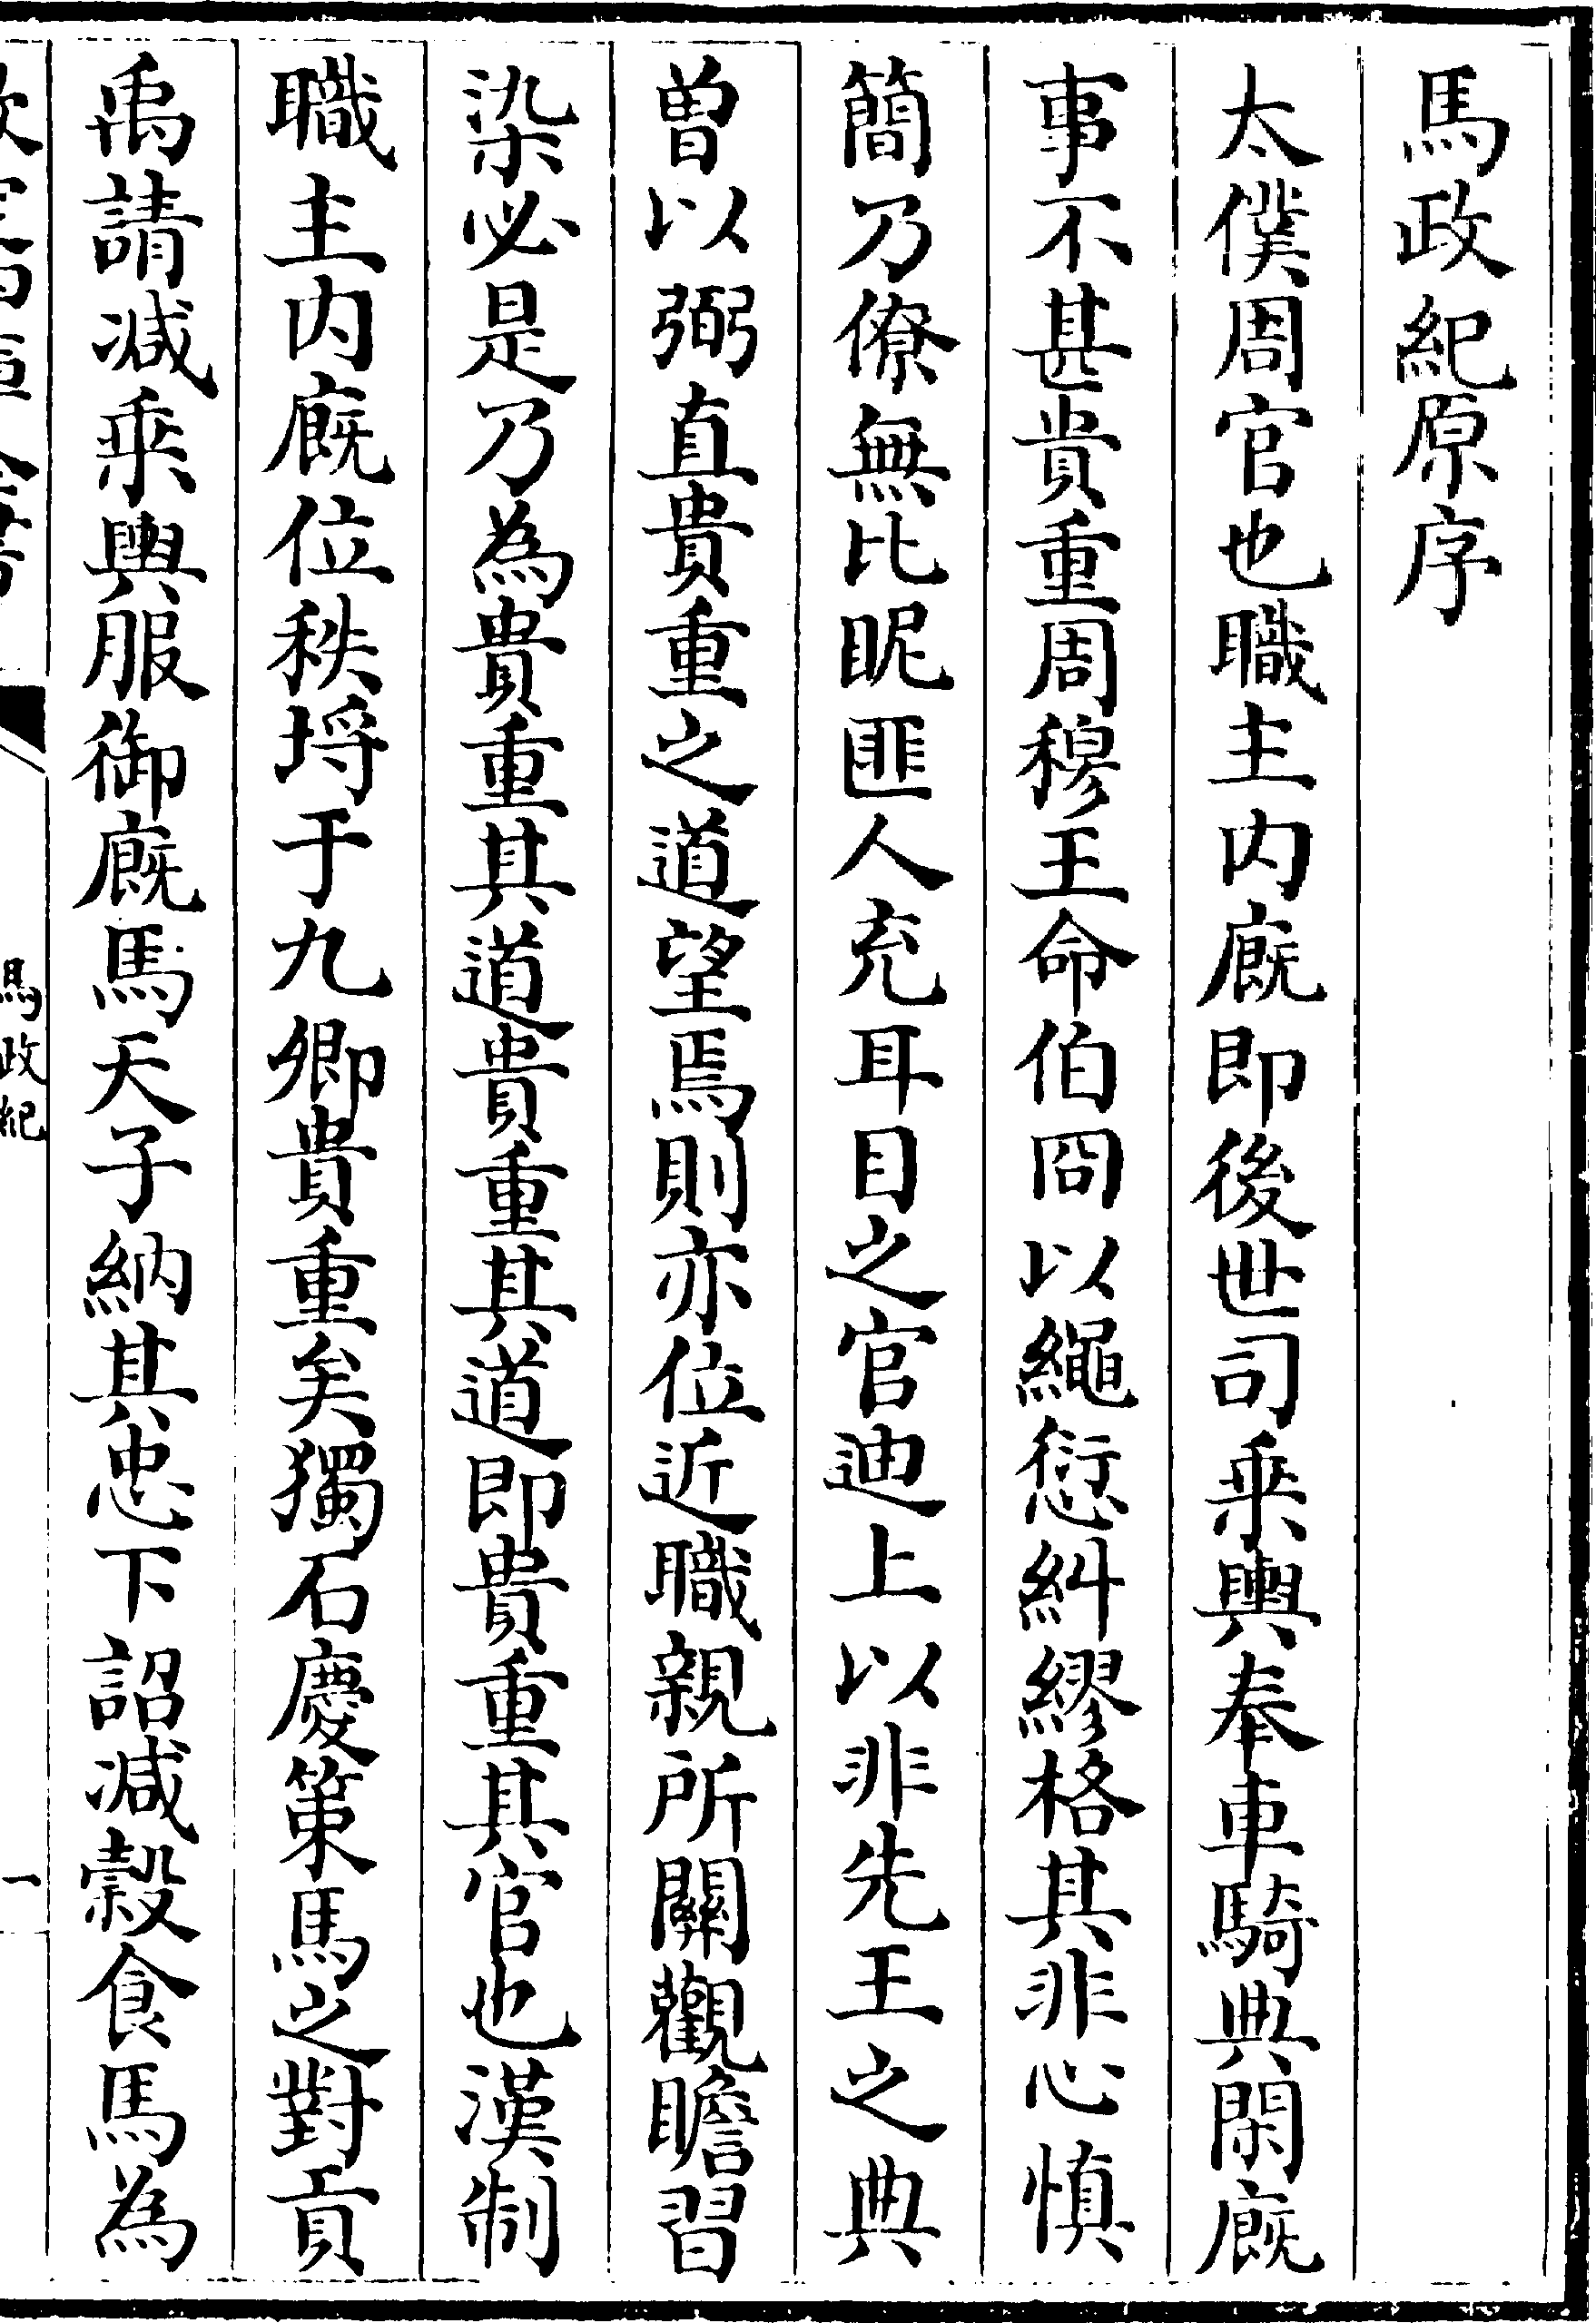 馬政紀原序
太僕周官也職主内廐即後世司乗輿奉車騎典閑廐
事不甚貴重周穆王命伯冏以繩愆糾繆格其非心慎
簡乃僚無比昵匪人充耳目之官迪上以非先王之典
曽以弼直貴重之道望焉則亦位近職親所關觀瞻習
染必是乃為貴重其道貴重其道即貴重其官也漢制
職主内廐位秩埒于九卿貴重矣獨石慶策馬之對貢
禹請减乗輿服御廐馬天子納其忠下詔减穀食馬為
馬政紀
一